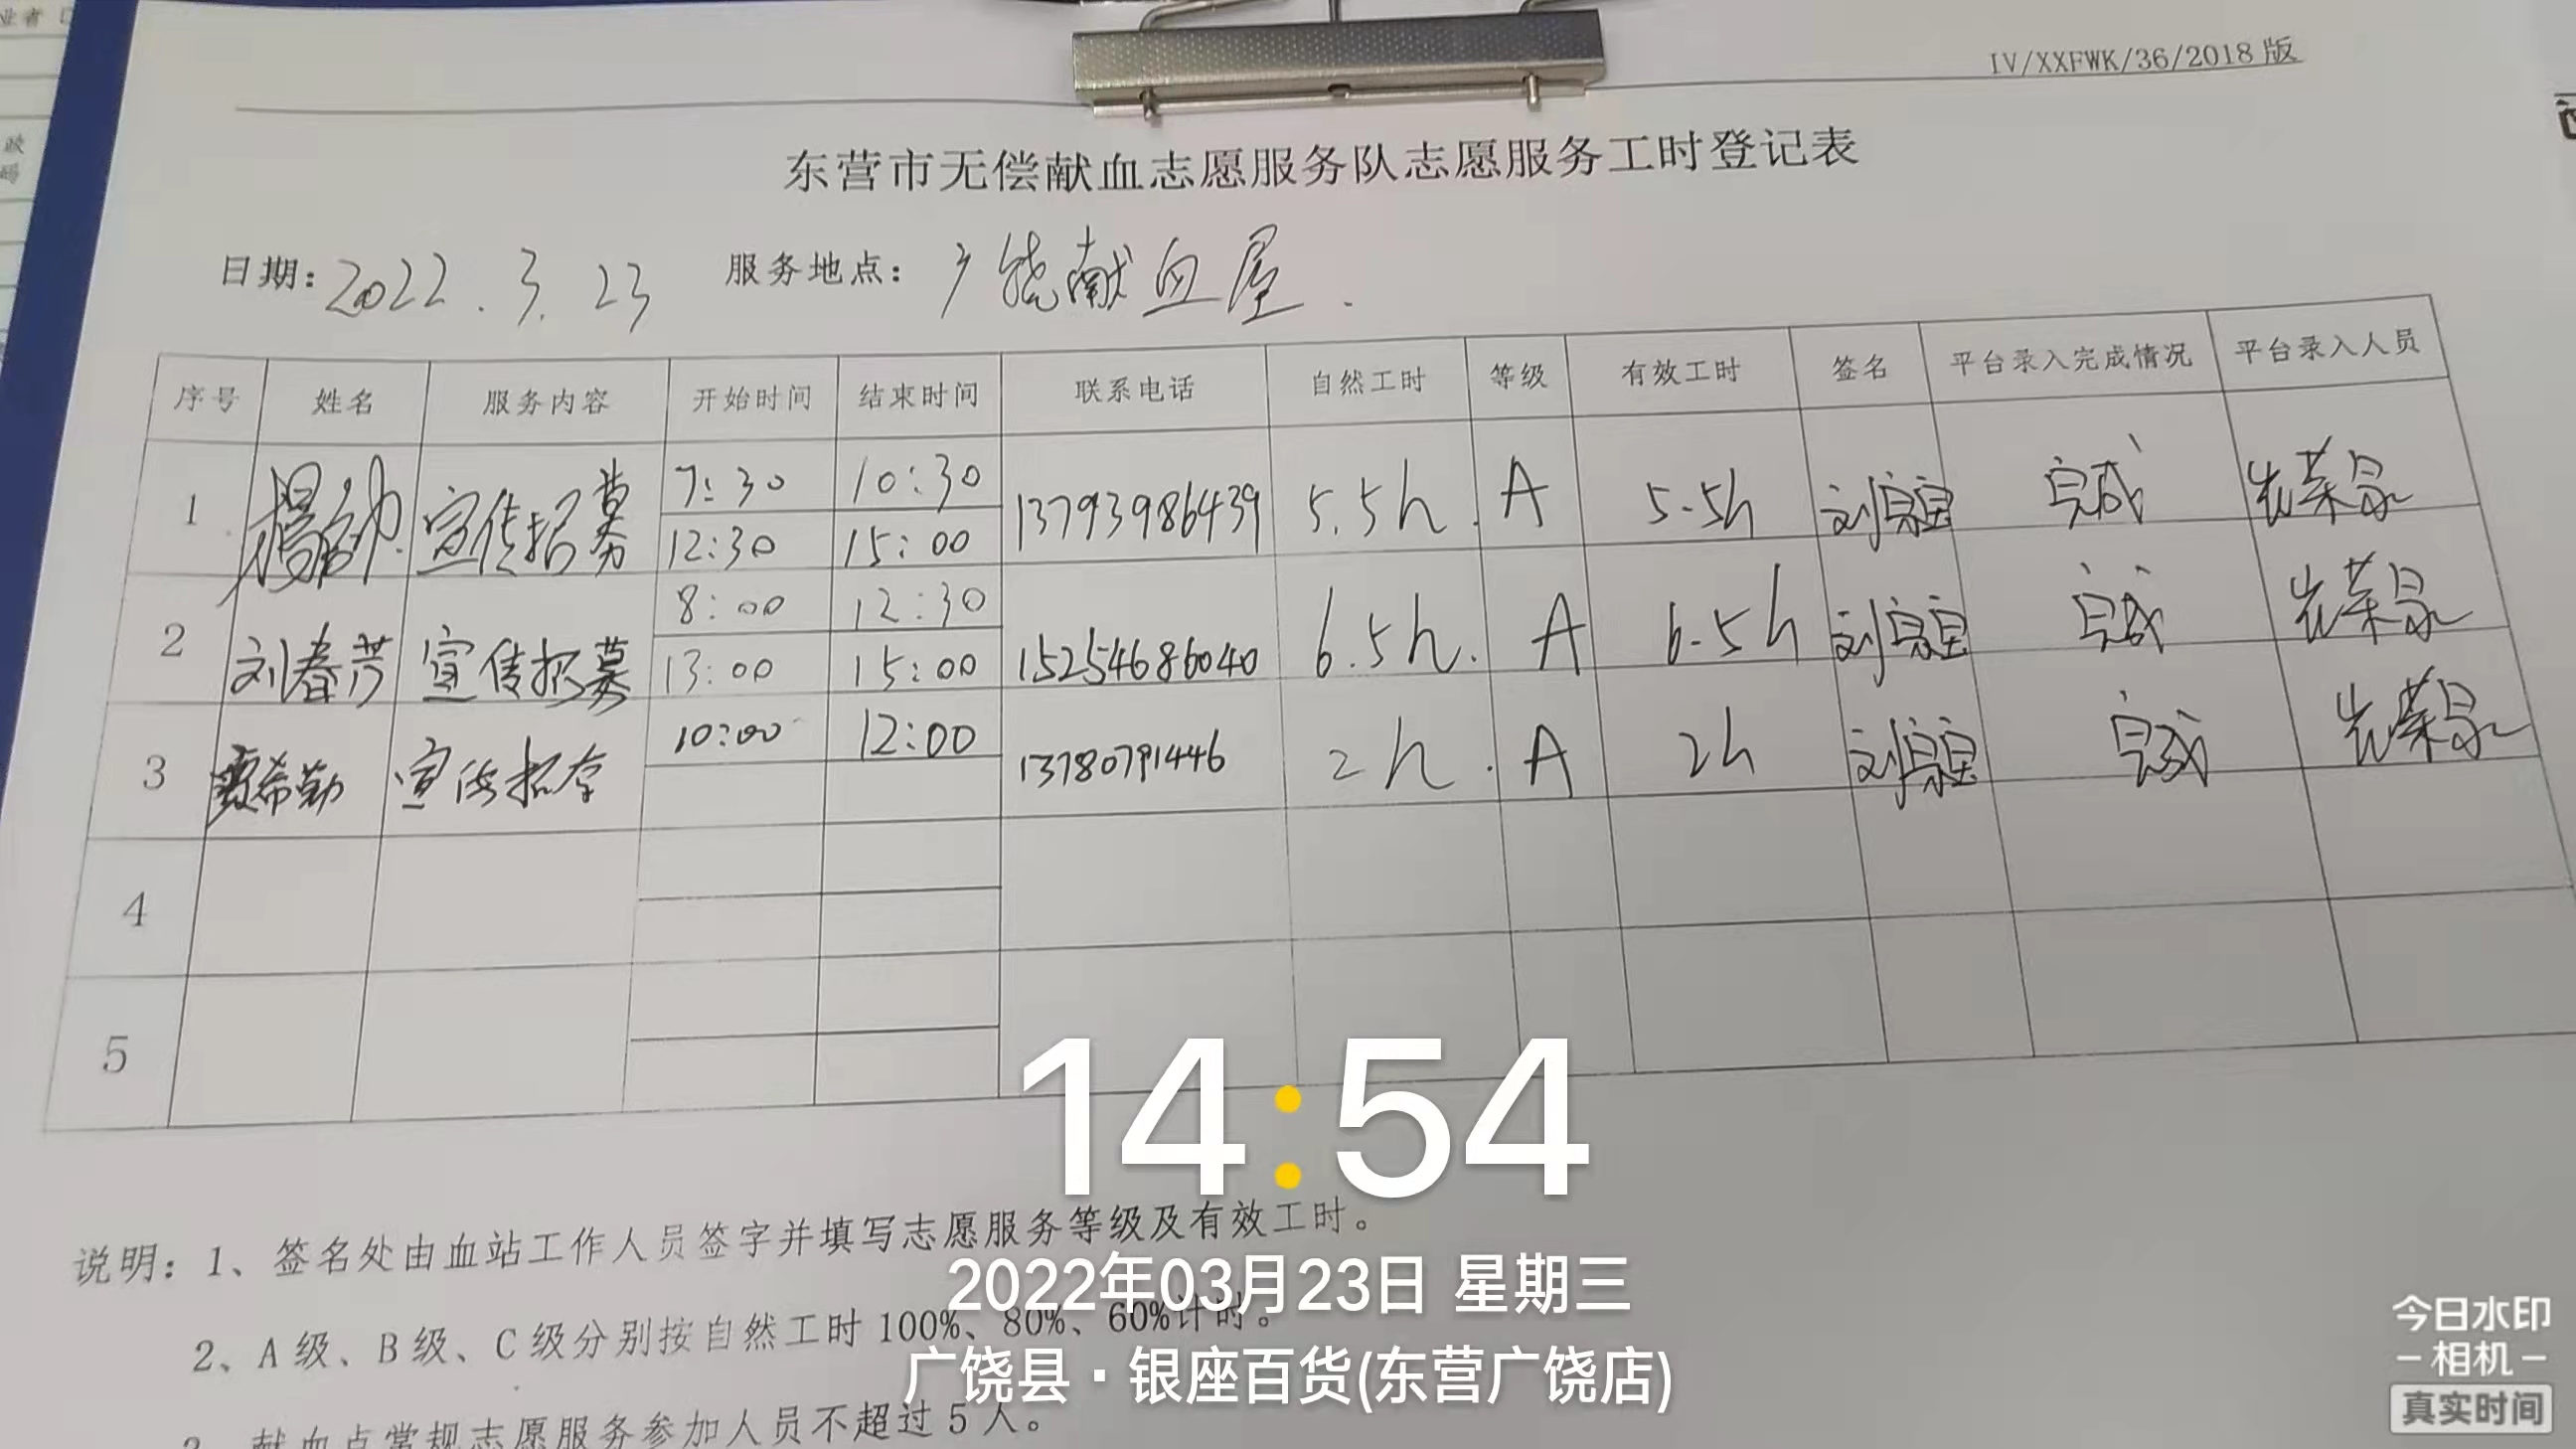 业者
IV/XXFWK/36/2018版
东营市无偿献血志愿服务队志愿服务工时登记表
日期：2022.3.23 服务地点：广饶献血屋.
序号 姓名 服务内容 开始时间 结束时间 联系电话 自然工时 等级 有效工时 签名 平台录入完成情况 平台录入人员
1 宣传招募 7:30 10:30 13793986439 5.5h. A 5.5h 完成
12:30 15:00
2 刘春芳 宣传招募 8:00 12:30 15254686040 6.5h. A 6.5h 完成
13:00 15:00
3 贾希勤 宣传招募 10:00 12:00 13780791446 2h. A 2h 完成
4
5
说明：1、签名处由血站工作人员签字并填写志愿服务等级及有效工时。
2、A级、B级、C级分别按自然工时100%、80%、60%计时。
3、献血点常规志愿服务参加人员不超过5人。
14:54
2022年03月23日 星期三
广饶县·银座百货(东营广饶店)
今日水印
-相机-
真实时间